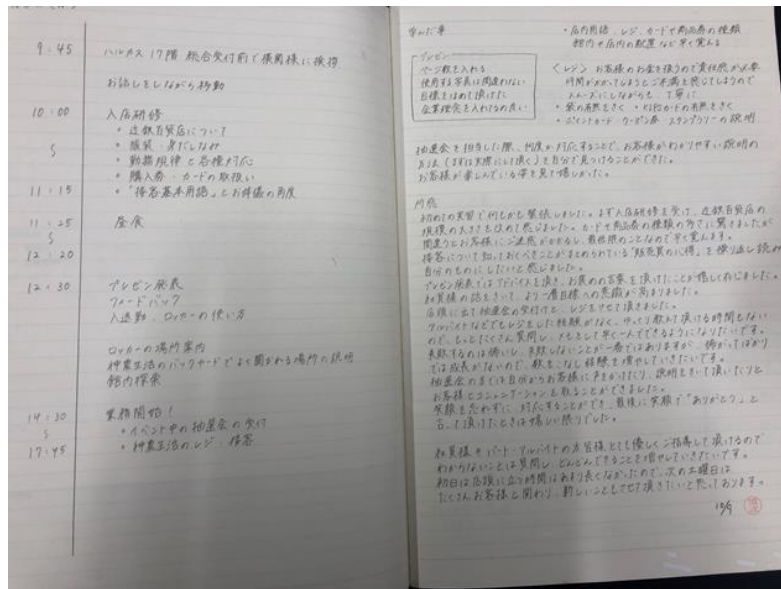 9:45
ハルカス17階 総合受付前で横関様に挨拶
お話しをしながら移動
10:00
入店研修
・近鉄百貨店について
・服装・身だしなみ
・勤務規律と各種対応
・購入券・カードの取扱い
11:15
・「接客基本用語」とお辞儀の角度
11:25
昼食
12:20
12:30
プレゼン発表
フィードバック
入退勤、ロッカーの使い方
ロッカーの場所案内
神農生活のバックヤードでよく聞かれる場所の説明
館内探索
14:30
業務開始!
・イベント中の抽選会の受付
17:45
・神農生活のレジ・接客
学んだ事
・店内用語、レジ、カードや商品券の種類
館内や店内の配置など早く覚える
プレゼン
ページ数を入れる
使用する写真は間違わない
目標をほめて頂けた
企業理念を入れてるの良い
〈レジ〉お客様のお金を扱うので責任感が必要
時間がかかってしまうとご不満を感じてしまうので
スムーズにしながらも、丁寧に
・袋の有無をきく ・KIPSカードの有無をきく
・ポイントカード・クーポン券 スタンプラリーの説明
抽選会を担当した際、何度か対応することで、お客様がわかりやすい説明の
方法(まずは実際にして頂く)を自分で見つけることができた。
お客様が楽しんでいる姿を見て嬉しかった。
所感
初めての実習で何もかも緊張しました。まず入店研修を受け、近鉄百貨店の
規模の大きさを改めて感じました。カードや商品券の種類の多さに驚きましたが
間違うとお客様にご迷惑がかかるし、最低限のことなので早く覚えます。
接客について知っておくべきことがまとめられている"販売員の心得"を繰り返し読み
自分のものにしたいと感じました。
プレゼン発表ではアドバイスを頂き、お褒めの言葉を頂けたことが嬉しく感じました。
社員様の話をきいて、より一層目標への意識が高まりました。
店頭に出て抽選会の受付けと、レジをさせて頂きました。
アルバイトなどでもレジをした経験がなく、ゆっくり教えて頂ける時間もない
ので、もっとたくさん質問し、メモとして早く一人でできるようになりたいです。
失敗するのは怖いし、失敗しないことが一番ではありますが、怖がってばかり
では成長がないので、数をこなし経験を増やしていきたいです。
抽選会の方では自分からお客様に声をかけたり、説明をきいて頂いたりと
お客様とコミュニケーションを取ることができました。
笑顔を忘れずに、対応することができ、最後に笑顔で「ありがとう」と
言って頂けたときは嬉しい限りでした。
社員様やパート・アルバイトの方皆様とても優しくご指導して頂けるので
わからないことは質問し、どんどんできることを増やしていきたいです。
初日は店頭に立つ時間はあまり長くなかったので、次の土曜日は
たくさんお客様と関わり、新しいこともさせて頂きたいと思っております。
10/9